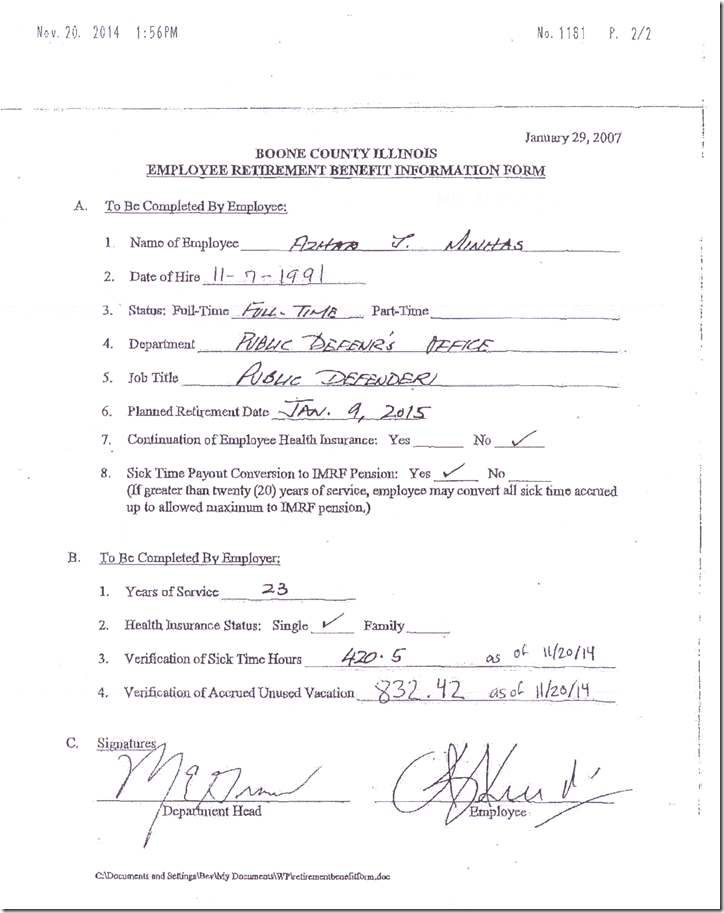 Nov. 20. 2014 1:56PM No. 1181 P. 2/2
January 29, 2007
BOONE COUNTY ILLINOIS
EMPLOYEE RETIREMENT BENEFIT INFORMATION FORM
A. To Be Completed By Employee:
1. Name of Employee AZHAR J. MINHAS
2. Date of Hire 11-7-1991
3. Status: Full-Time FULL-TIME Part-Time
4. Department PUBLIC DEFENR'S OFFICE
5. Job Title PUBLIC DEFENDER
6. Planned Retirement Date JAN. 9, 2015
7. Continuation of Employee Health Insurance: Yes No ✓
8. Sick Time Payout Conversion to IMRF Pension: Yes ✓ No
(If greater than twenty (20) years of service, employee may convert all sick time accrued
up to allowed maximum to IMRF pension.)
B. To Be Completed By Employer:
1. Years of Service 23
2. Health Insurance Status: Single ✓ Family
3. Verification of Sick Time Hours 420.5 as of 11/20/14
4. Verification of Accrued Unused Vacation 832.42 as of 11/20/14
C. Signatures
Department Head Employee
C:\Documents and Settings\Bev\My Documents\WP\retirementbenefitform.doc